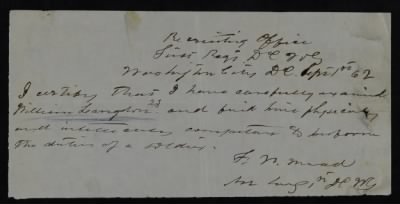 Recruiting Office
First Reg't D C Vols
Washington City D.C. Sept 1st 62
I certify that I have carefully examined
William Langton 23 and find him physically
and intellectually competent to perform
the duties of a soldier.
F. N. Mead
Surg 1st D C Vols